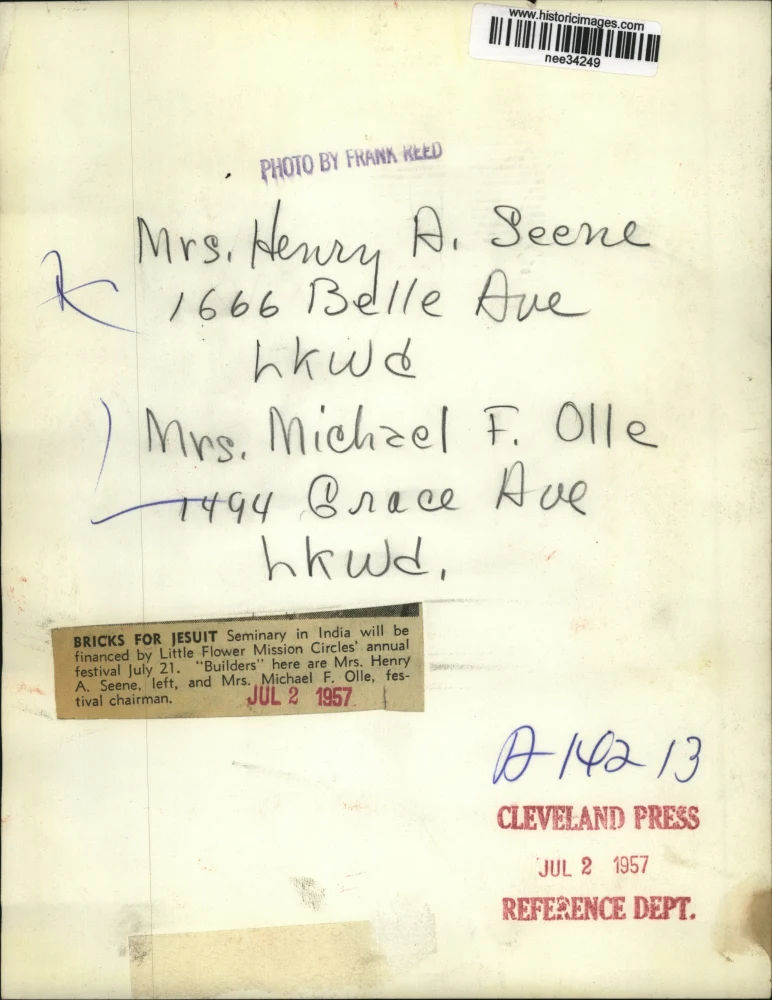 www.historicimages.com
nee34249
PHOTO BY FRANK REED
Mrs. Henry A. Seene
1666 Belle Ave
Lkwd
Mrs. Michael F. Olle
1494 Grace Ave
Lkwd.
BRICKS FOR JESUIT Seminary in India will be
financed by Little Flower Mission Circles' annual
festival July 21. "Builders" here are Mrs. Henry
A. Seene, left, and Mrs. Michael F. Olle, fes-
tival chairman.
JUL 2 1957
A-142 13
CLEVELAND PRESS
JUL 2 1957
REFERENCE DEPT.